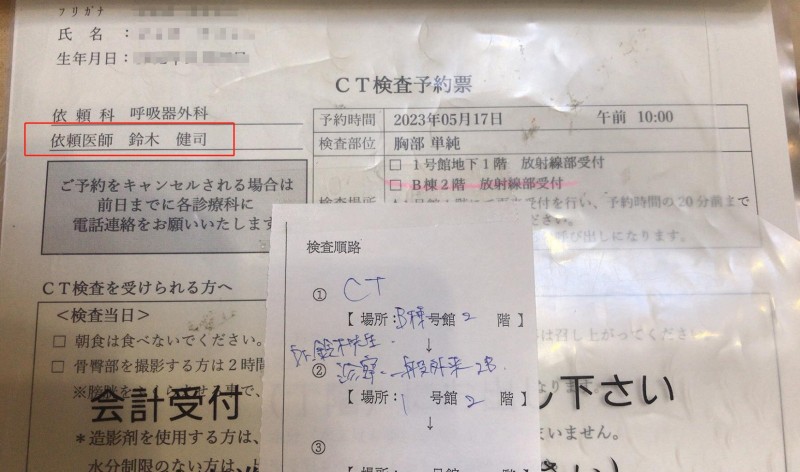 フリガナ
氏 名
生年月日
ＣＴ検査予約票
依 頼 科 呼吸器外科
依頼医師 鈴木 健司
予約時間 2023年05月17日 午前 10:00
検査部位 胸部 単純
□ 1号館地下1階 放射線部受付
□ B棟2階 放射線部受付
ご予約をキャンセルされる場合は
前日までに各診療科に
電話連絡をお願いいたします
検査場所
受付を行い、予約時間の20分前まで
ださい。
呼び出しになります。
検査順路
① CT
【 場所：B棟 号館 2 階 】
↓
Dr.鈴木先生
② 診察 一般外来 2B
【 場所：1 号館 2 階 】
↓
③
ＣＴ検査を受けられる方へ
＜検査当日＞
□ 朝食は食べないでください。
は召し上がってください。
□ 骨臀部を撮影する方は2時間
会計受付
し下さい
＊造影剤を使用する方は、
まいません。
水分制限のない方は、